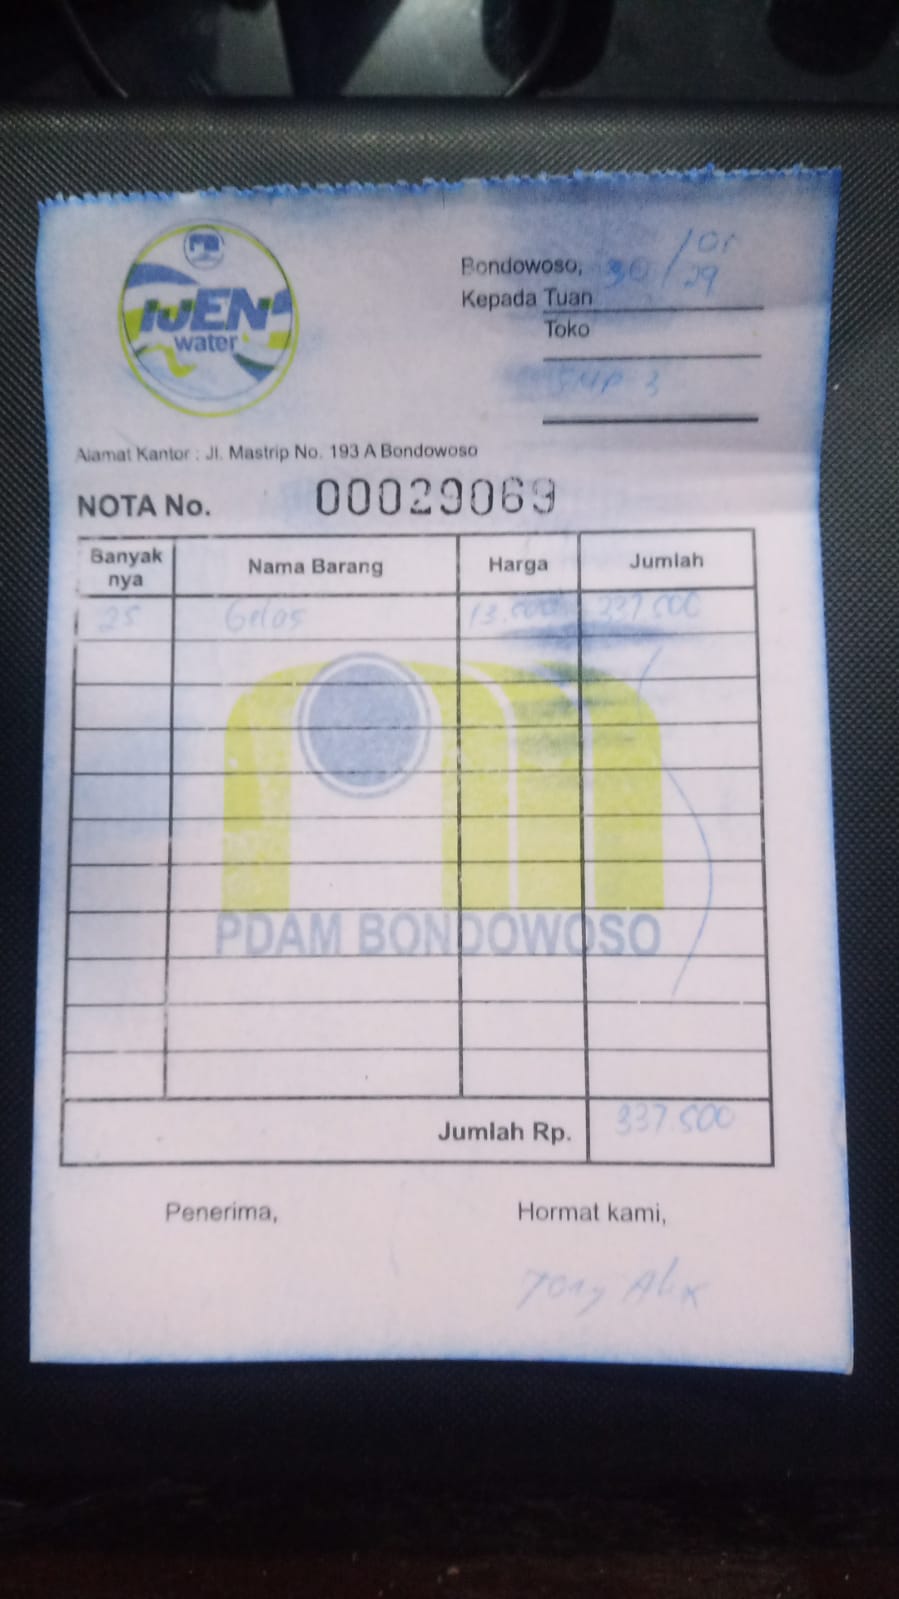 IJEN
water
Bondowoso, 30/01
Kepada Tuan
Toko
SMP 3
Alamat Kantor : Jl. Mastrip No. 193 A Bondowoso
NOTA No. 00029069
Banyak nya Nama Barang Harga Jumlah
25 Gelas 13.500 337.500
PDAM BONDOWOSO
Jumlah Rp. 337.500
Penerima, Hormat kami,